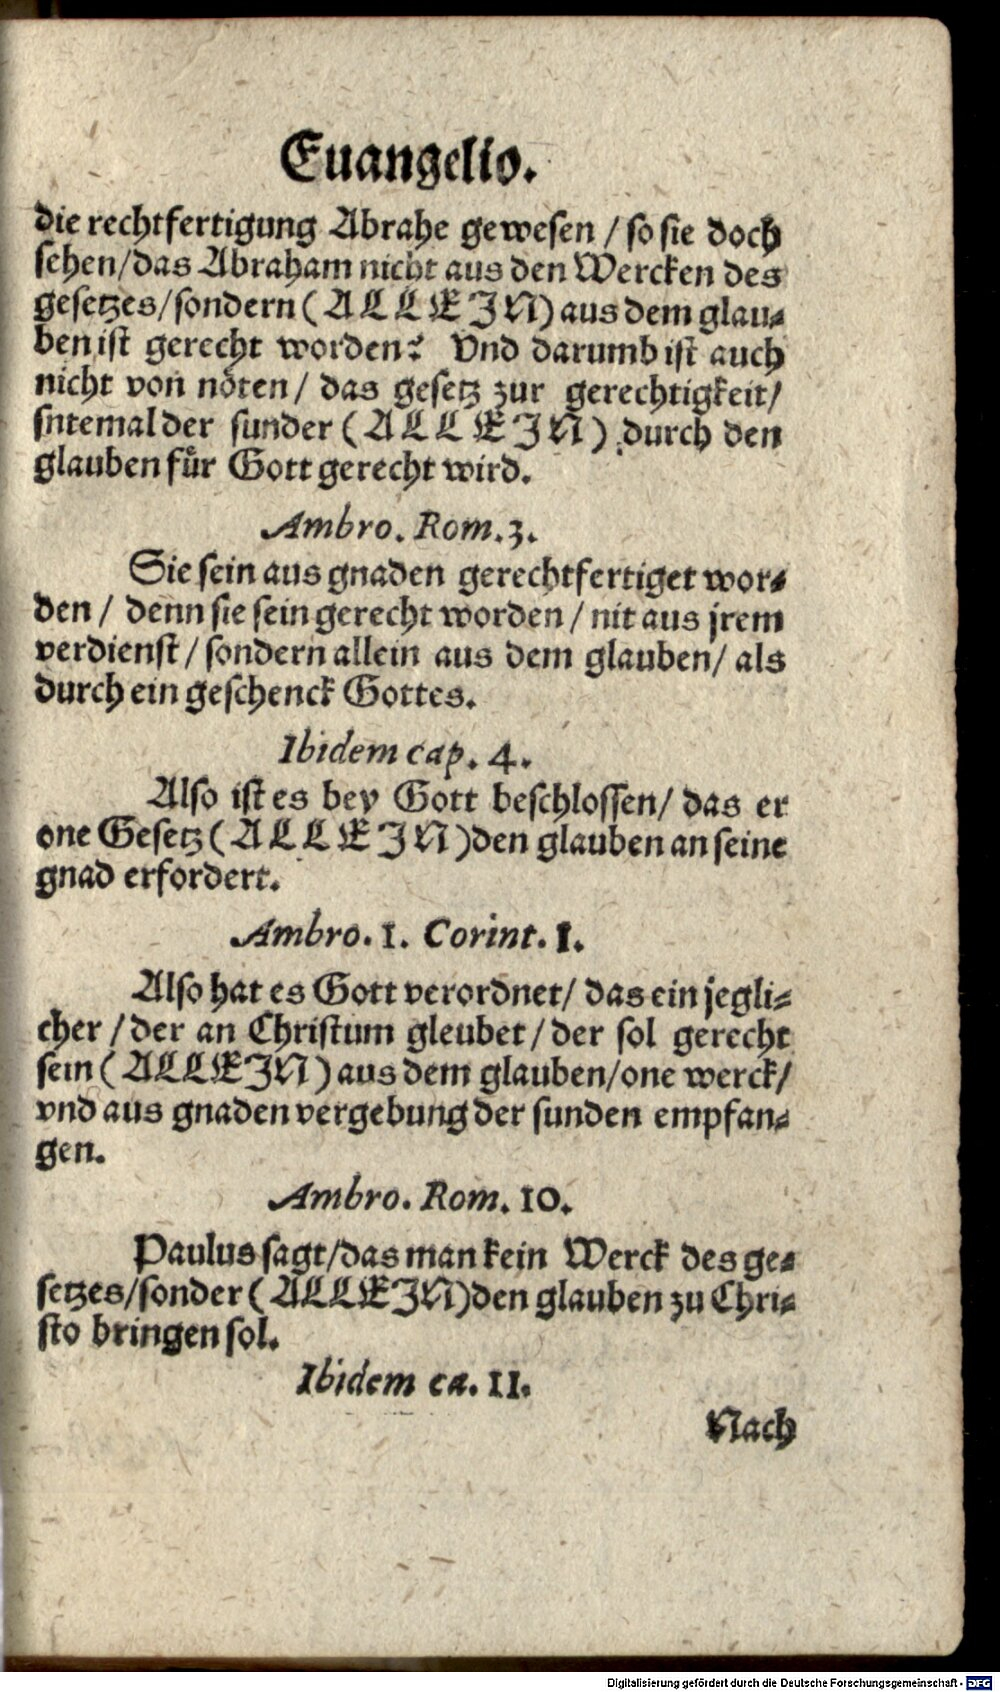 Euangelio.
die rechtfertigung Abrahe gewesen / so sie doch
sehen/das Abraham nicht aus den Wercken des
gesetzes/sondern (ALLEIN) aus dem glau⸗
ben ist gerecht worden? Vnd darumb ist auch
nicht von nöten / das gesetz zur gerechtigkeit/
sntemal der sunder (ALLEIN) durch den
glauben fůr Gott gerecht wird.
Ambro. Rom. 3.
Sie sein aus gnaden gerechtfertiget wor⸗
den / denn sie sein gerecht worden / nit aus jrem
verdienst / sondern allein aus dem glauben/ als
durch ein geschenck Gottes.
Ibidem cap. 4.
Also ist es bey Gott beschlossen/ das er
one Gesetz (ALLEIN) den glauben an seine
gnad erfordert.
Ambro. 1. Corint. 1.
Also hat es Gott verordnet/ das ein jegli⸗
cher / der an Christum gleubet / der sol gerecht
sein (ALLEIN) aus dem glauben/one werck/
vnd aus gnaden vergebung der sunden empfan⸗
gen.
Ambro. Rom. 10.
Paulus sagt/das man kein Werck des ge⸗
setzes/sonder (ALLEIN) den glauben zu Chri⸗
sto bringen sol.
Ibidem ca. 11.
Nach
Digitalisierung gefördert durch die Deutsche Forschungsgemeinschaft - DFG